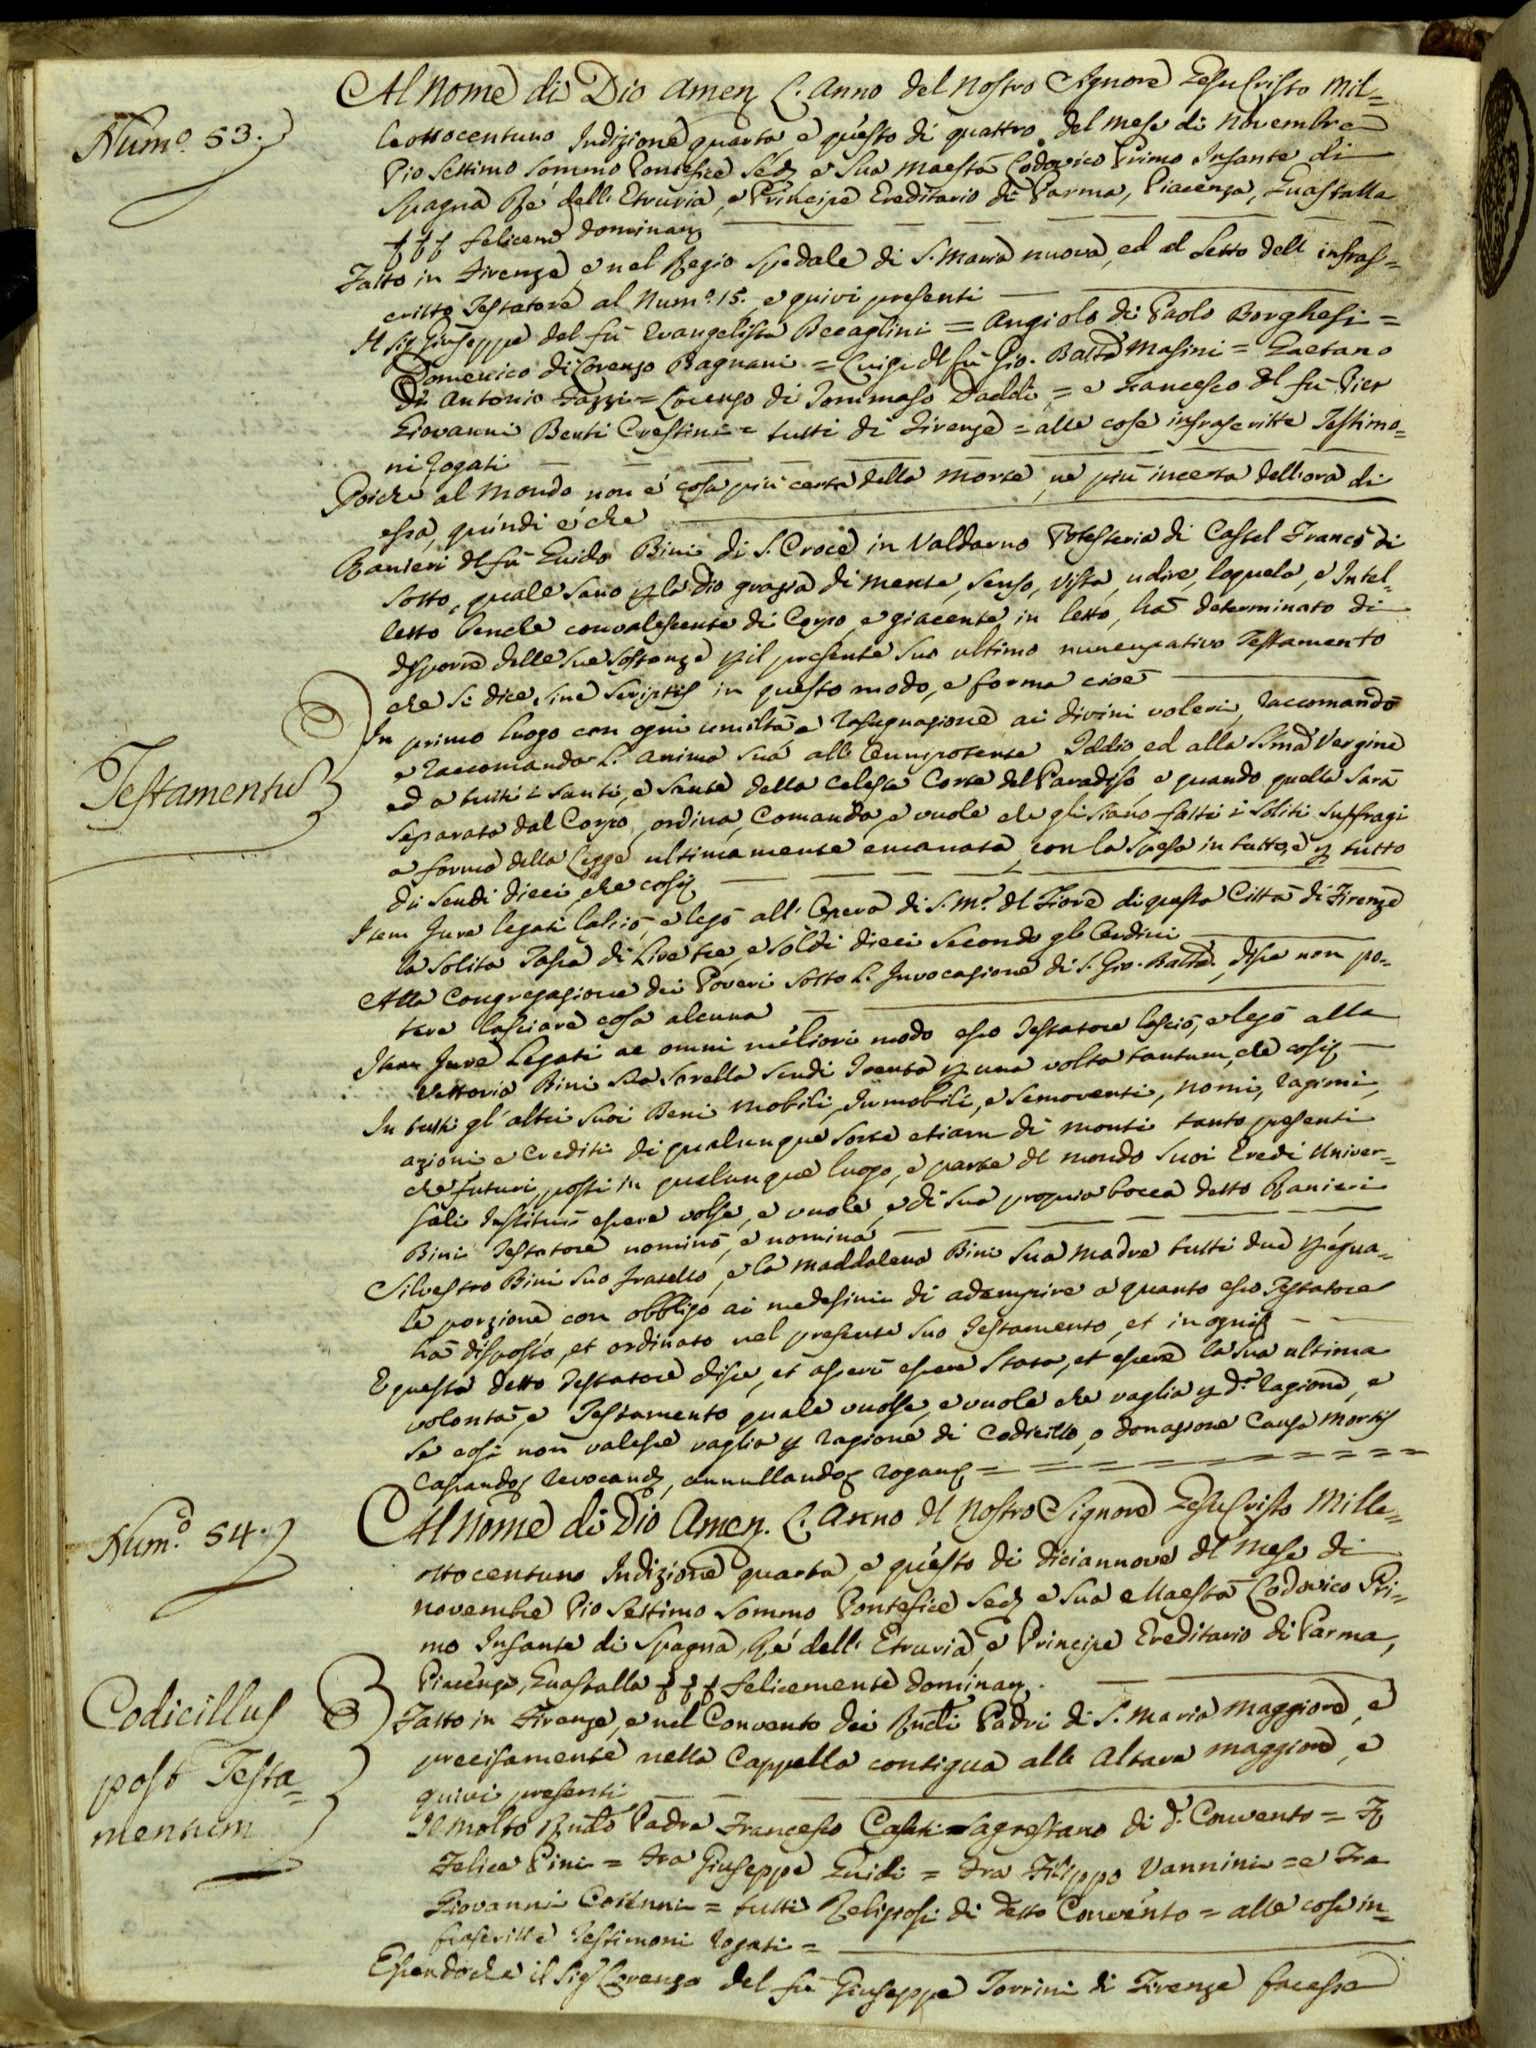 Num.º 53.
Al Nome di Dio Amen L'Anno del Nostro Signore Gesù Cristo Mil=
leottocentuno Indizione quarta e questo dì quattro del Mese di Novembre
Pio Settimo Sommo Pontefice Sed. e Sua Maestà Lodovico Primo Infante di
Spagna Rè dell'Etruria, e Principe Ereditario di Parma, Piacenza, Guastalla
felicem.e Dominan.
Fatto in Firenze e nel Regio Spedale di S. Maria nuova, ed al Letto dell'infras=
critto Testatore al Num.º 15. e quivi presenti
Il Sig. Giuseppe del fù Evangelista Beccaglini = Angiolo di Paolo Borghesi =
Domenico di Lorenzo Bagnani = Luigi del fù Gio. Batta Masini = Gaetano
di Antonio Fazzi = Lorenzo di Tommaso Daddi = e Francesco del fù Pier
Giovanni Benti Crestini = tutti di Firenze = alle cose infrascritte Testimo=
ni rogati
Poichè al Mondo non è cosa più certa della Morte, nè più incerta dell'ora di
essa, quindi è che
Ranieri del fù Guido Bini di S. Croce in Valdarno Potesteria di Castel Franco di
Sotto, quale sano p la Dio grazia di Mente, senso, vista, udire, loquela, e Intel=
letto benchè convalescente di Corpo, e giacente in letto, hà determinato di
disporre delle sue sostanze p il presente suo ultimo nuncupativo Testamento
che si dice sine scriptis in questo modo, e forma cioè
Testamentu
In primo luogo con ogni umiltà, e rassegnazione ai divini voleri, raccomandò
e raccomanda l'anima sua all'Onnipotente Iddio ed alla SSma Vergine
ed a tutti i Santi, e Sante della Celeste Corte del Paradiso, e quando quella sarà
separata dal Corpo, ordina, Comanda, e vuole che gli siano fatti i soliti suffragi
a forma della Legge ultimamente emanata, con la spesa in tutto, e p tutto
di scudi dieci, che così
Item Jure legati lasciò, e legò all'Opera di S. M.ª del Fiore di questa Città di Firenze
la solita Tassa di Lire tre, e soldi dieci secondo gli Ordini
Alla Congregazione dei Poveri sotto l'Invocazione di S. Gio. Batta, disse non po=
tere lasciare cosa alcuna
Item Jure Legati ac omni meliori modo esso Testatore lasciò, e legò alla
Vettoria Bini sua Sorella scudi Trenta p una volta tantum, che così
In tutti gl'altri suoi Beni Mobili, Immobili, e Semoventi, Nomi, ragioni,
azioni e Crediti di qualunque sorte etiam di Monti tanto presenti
che futuri, posti in qualunque luogo, e parte del mondo suoi Eredi Univer=
sali Instituì essere volse, e vuole, e di sua propria bocca detto Ranieri
Bini Testatore nominò, e nomina
Silvestro Bini suo fratello, e la Maddalena Bini sua Madre tutti due p egua=
le porzione con obbligo ai medesimi di adempire a quanto esso Testatore
hà disposto, et ordinato nel presente suo Testamento, et in ogni
E questa detto Testatore disse, et asserì essere Stata, et essere la sua ultima
volontà, e Testamento quale volse, e vuole che vaglia p d.ª ragione, e
se così non valesse vaglia p ragione di Codicillo, o donazione Causa Mortis
Cassando, revocand, annullando rogan =
Num.º 54.
Al Nome di Dio Amen. L'Anno del Nostro Signore Gesù Cristo Mille=
ottocentuno Indizione quarta, e questo dì diciannove del Mese di
novembre Pio Settimo Sommo Pontefice Sed. e Sua Maestà Lodovico Pri=
mo Infante di Spagna, Rè dell'Etruria, e Principe Ereditario di Parma,
Piacenza, Guastalla felicemente Dominan.
Codicillus
post Testa=
mentum
Fatto in Firenze, e nel Convento dei Rndi Padri di S. Maria Maggiore, e
precisamente nella Cappella contigua all'Altare Maggiore, e
quivi presenti
Il Molto Rndo Padre Francesco Casti Sagrestano di d.º Convento = Fra
Felice Pini = Fra Giuseppe Guidi = Fra Filippo Vannini = e Fra
Giovanni = tutti Religiosi di detto Convento = alle cose in=
frascritte Testimoni rogati =
Essendoche il Sig. Lorenzo del fù Giuseppe Torrini di Firenze facesse